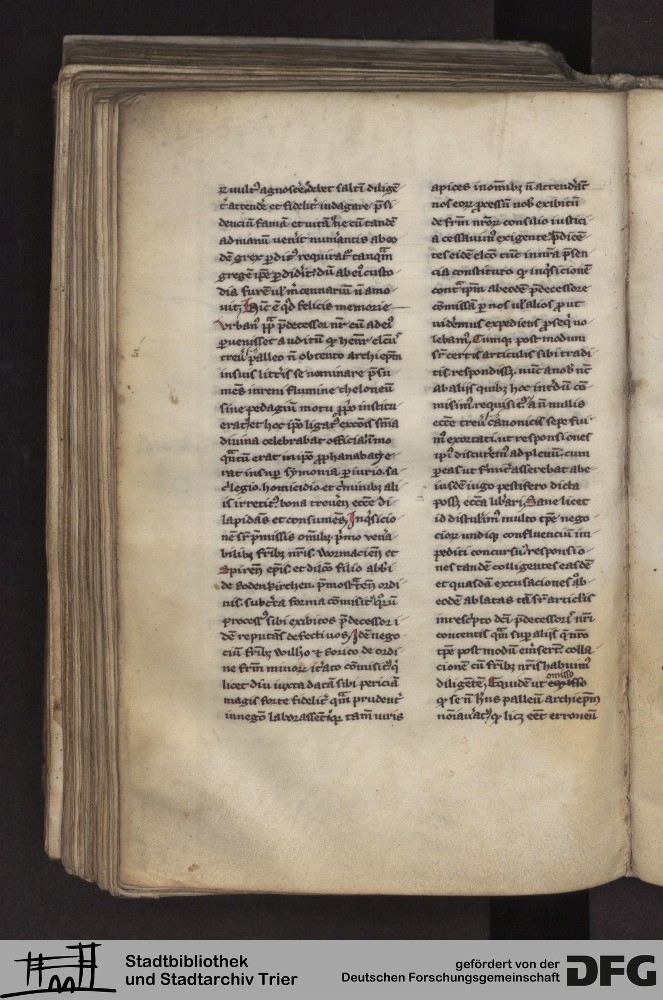 r vult᷒ agnosce᷒ debet saltī diligē
t᷒ attende᷒ et fidelit᷒ indagare p̄si
denciū famā et uitā ne cū tandē
ad manū uenit᷒ numantis ab eo
dē grex p̱dit᷒ requirat᷒ tanq̄m
gregē ip̄e p̱didit᷒ dū ab ei᷒ custo
dia furē ul᷒ m᷒cennariū n̄ amo
uit, Hīc ē qd felicis memorie
vrban᷒ pp̄ p̄decessor nr̄ cū ad ei᷒
p̱uenisset auditū qͥ henr᷒ elc̄us
treu᷒ palleo n̄ obtento archiep̄m
in suis litt᷒is se nominare p̄su
mēs in reni flumine theloneū
sine pedagiū motu p̱p̱o institu
erat᷒ et hoc ip̄o ligat᷒ excōīs sn̄ia
diuina celebrabat officia īmo
qͣntū erat in ip̄o p̱phanabat᷒ e
rat insup̱ symonia p̱iurio. sa
c᷒legio. homicidio. et c᷒minibꝫ ali
is irretit᷒. bona treueñ ecc̄e di
lapidās et consumēs, Inqͥsicio
nē sr̄ p̄missis om̄ibꝫ pͥmo ven̄a
bilibꝫ fr̄ibꝫ nr̄is. wormacieñ et
Spireñ ep̄is. et dilc̄o filio abb̄i
de Rodenkirchen. p̄monstͣteñ ordi
nis. sub c̄ta forma cōmisit᷒ qͦrū
p̱cess᷒ sibi exhibitos p̄decessor i
dē reputās defectiuos, Idē nego
ciū fr̄ibꝫ willͦo & Rorico de ordi
ne fr̄m minoꝝ it᷒ato cōmisit᷒ qͥ
licet diu iuxta datā sibi periciā
magis forte fidelit᷒ qͣm prudent᷒
in negͦo laborassēt᷒ qꝛ tam̄ iuris
apices in om̄ibꝫ n̄ attenderāt
nos eoꝝ p̱cessū nob̄ exibitū
de fr̄m nr̄oꝝ consilio iustici
a cessauim᷒ exigente p̄dicē
tes eidē elc̄o tūc in nr̄a p̄sen
cia constituto qͥ inqͥsicionē
contͣ ip̄m ab eodē p̄decessore
cōmissā p̱ nos ul᷒ alios p̱ ut
uidērmus expediens p̱seqͥ uo
lebam᷒, Cumqꝫ post modum
sr̄ certis articulis sibi tradi
tis respondissꝫ. nūc a nob̄ nūc
ab aliis quibꝫ hoc int᷒dū cō
misim᷒ requisit᷒. a nōnullis
ecc̄e treu᷒ canonicis sepe fui
m᷒ exortati. ut responsiones
ip̄i discut᷒em᷒ ad plenū. cum
p̱eas ut firmit᷒ asserebāt abe
iusdē iugo pestifero dicta
possꝫ ecc̄a lib᷒ari, Sane licet
id distulim᷒ multo tp̄e nego
cioꝝ undiqꝫ confluenciū im
pediti concursu᷒ responsio
nes tandē colligentes easdē
et quasdā excusaciones ab
eodē ablatas tā sr̄ articlis
in resc᷒pto dc̄i p̄decessoris nr̄i
contentis qͣm sup̱ aliis qͥ nr̄o
tp̄e post modū em̄serūt colla
cionē cū fr̄ibꝫ nr̄is habuim᷒
diligētē, Equidē ut
omisso
qͥ se n̄ hn̄s palleū archiep̄m
noīauāt᷒ qͥ licꝫ eēt erroneū
Stadtbibliothek
und Stadtarchiv Trier
gefördert von der
Deutschen Forschungsgemeinschaft
DFG